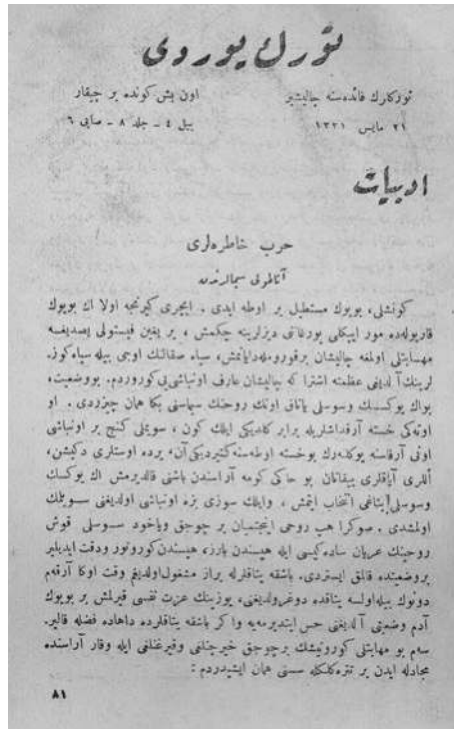 تورك يوردی
توركلرك فائده‌سنه چاليشير
اون بش كونده بر چيقار
٢١ مايس ١٣٣١
ييل ٤ – جلد ٨ – صايی ٦
ادبيات
حرب خاطره‌لری
آناطولی سيمالرندن
كونشلی، بويوك مستطيل بر اوطه ايدی . ايچری كيرنجه اولا اك بويوك
قاريوله‌ده مور ايپكلی يورغانی ديزلرينه چكمش ، بر ييغين فيستولی يصديغه
مهابتلی اولمغه چاليشان طايانمش، سياه صقالنك اوجی بيله سياه كوز
لرينك آلديغی عظمته اشتراك چاليشان عارف اونباشی‌يی كوروردم. بووضعيت،
بواك يوكسك وسوسلی ياتاق اونك روحنك سيماسنی بكا همان چيزردی . او
اوته‌كی خسته آرقداشلريله برابر كلديكی ايلك كون ، سويملی كنج بر اونباشی
اونی آرقاسنه يوكله‌رك بوخسته اوطه‌سنه كتيرديكی آن، يرده اوستلری دكيشن،
اللری آياقلری ييقانان بو خاكی كومه آراسندن باشنی قالديرمش اك يوكسك
وسوسلی ياتاغی انتخاب ايتمش ، وايلك سوزی بزه اونباشی اولديغنی سويلمك
اولمشدی . صوكرا هپ روحی اينجتميان بر چوجق وياخود سوسلی قوش
روحينك عريان ساده‌كيسی ايله هپسندن بارز، هپسندن كورونور ودقت ايديلير
بروضعيتده قالمق ايستردی. باشقه ياتاقلرله براز مشغول اولديغم وقت اوكا آرقه‌م
دونوك بيله اولسه ياتاقده دوغرولديغنی، يوزينك عزت نفسی قيرلمش بر بويوك
آدم وضعيتی آلديغنی حس ايتديرمه‌يه واكر باشقه ياتاقلرده داهاده فضله قالير.
سه‌م بو مهابتلی كورونيشك برچوجق خيرچنلغی وقيرغنلغی ايله وقار آراسنده
مجادله ايدن بر تتره‌كلكله سسنی همان ايشيدردم :
٨١